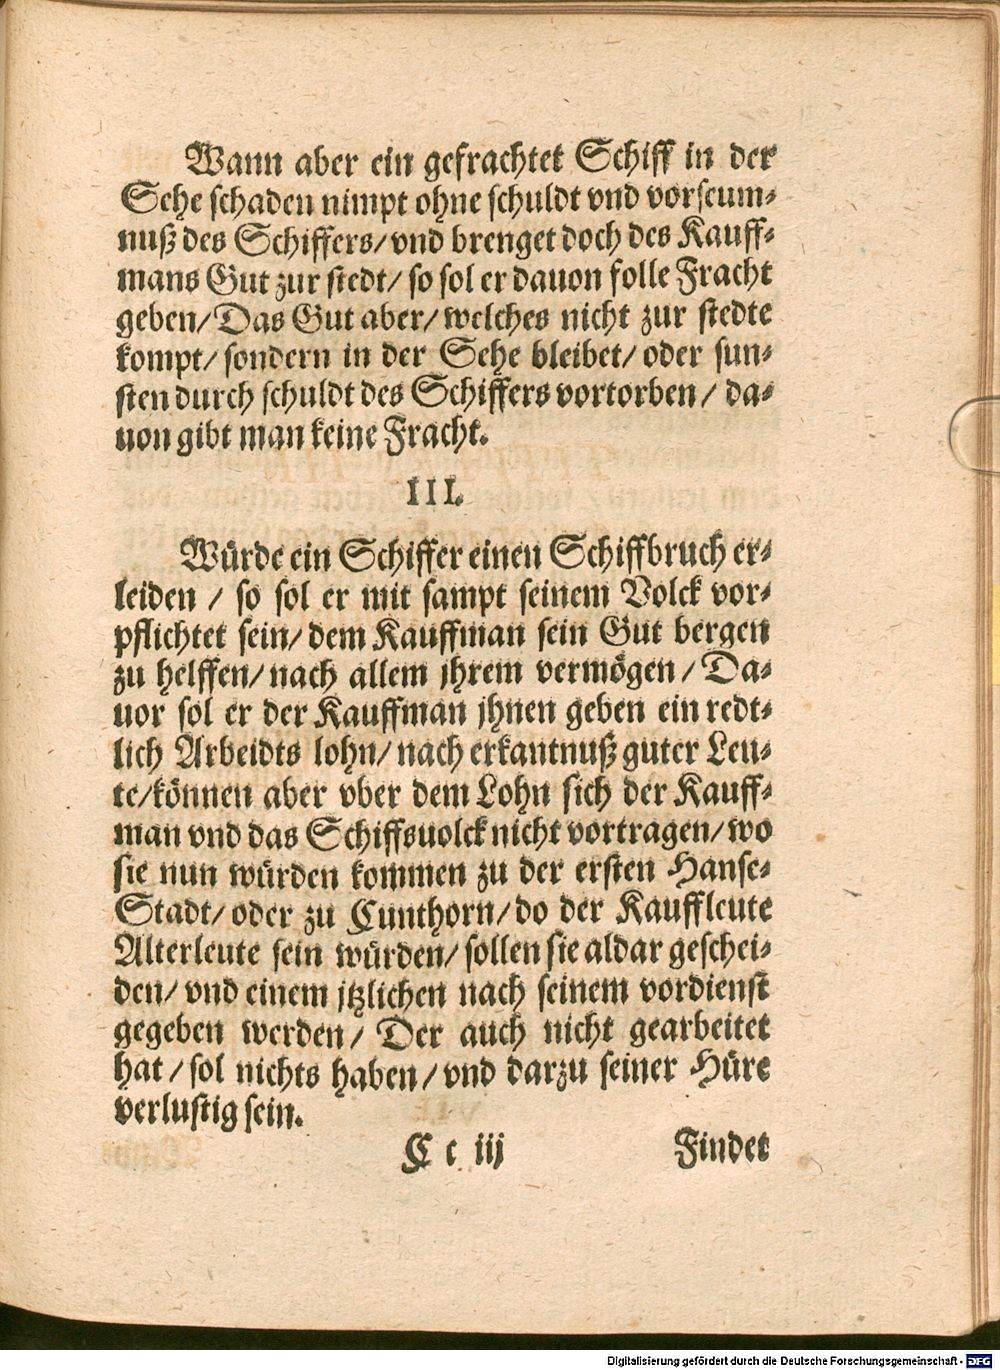 Wann aber ein gefrachtet Schiff in der
Sehe schaden nimpt ohne schuldt vnd vorseum-
nuß des Schiffers/ vnd brenget doch des Kauff-
mans Gut zur stedt/ so sol er dauon folle Fracht
geben/ Das Gut aber/ welches nicht zur stedte
kompt/ sondern in der Sehe bleibet/ oder sun-
sten durch schuldt des Schiffers vortorben/ da-
uon gibt man keine Fracht.
III.
Würde ein Schiffer einen Schiffbruch er-
leiden / so sol er mit sampt seinem Volck vor-
pflichtet sein/ dem Kauffman sein Gut bergen
zu helffen/ nach allem jhrem vermögen/ Da-
uor sol er der Kauffman jhnen geben ein redt-
lich Arbeidts lohn/ nach erkantnuß guter Leu-
te/ können aber vber dem Lohn sich der Kauff-
man vnd das Schiffsuolck nicht vortragen/ wo
sie nun würden kommen zu der ersten Hanse-
Stadt/ oder zu Cunthorn/ do der Kauffleute
Alterleute sein würden/ sollen sie aldar geschei-
den/ vnd einem jtzlichen nach seinem vordienst
gegeben werden/ Der auch nicht gearbeitet
hat / sol nichts haben/ vnd darzu seiner Hüre
verlustig sein.
C c iij Findet
Digitalisierung gefördert durch die Deutsche Forschungsgemeinschaft - DFG